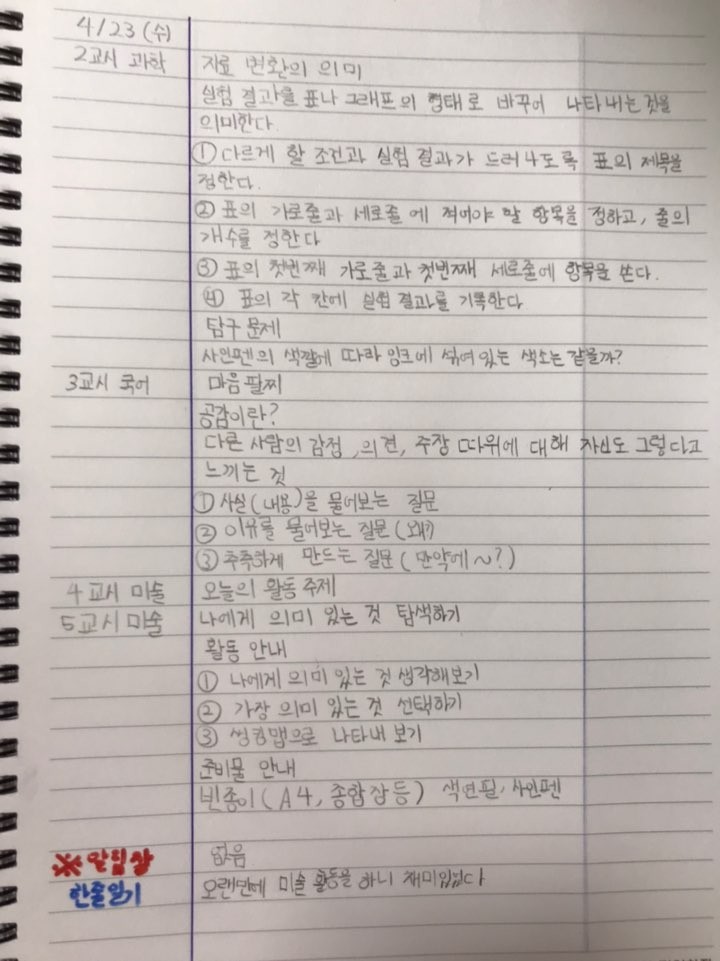 4/23 (수)
2교시 과학 자료 변환의 의미
실험 결과를 표나 그래프의 형태로 바꾸어 나타내는 것을
의미한다.
① 다르게 할 조건과 실험 결과가 드러나도록 표의 제목을
정한다.
② 표의 가로줄과 세로줄에 적어야 할 항목을 정하고, 줄의
개수를 정한다
③ 표의 첫번째 가로줄과 첫번째 세로줄에 항목을 쓴다.
④ 표의 각 칸에 실험 결과를 기록한다
탐구 문제
사인펜의 색깔에 따라 잉크에 섞여 있는 색소는 같을까?
3교시 국어 마음 필찌
공감이란?
다른 사람의 감정, 의견, 주장 따위에 대해 자신도 그렇다고
느끼는 것
① 사실(내용)을 물어보는 질문
② 이유를 물어보는 질문(왜?)
③ 추측하게 만드는 질문(만약에~?)
4교시 미술 오늘의 활동 주제
5교시 미술 나에게 의미 있는 것 탐색하기
활동 안내
① 나에게 의미 있는 것 생각해보기
② 가장 의미 있는 것 선택하기
③ 씽킹맵으로 나타내 보기
준비물 안내
빈종이(A4, 종합장등) 색연필, 사인펜
※알림장 없음
한줄일기 오랜만에 미술 활동을 하니 재미있었다